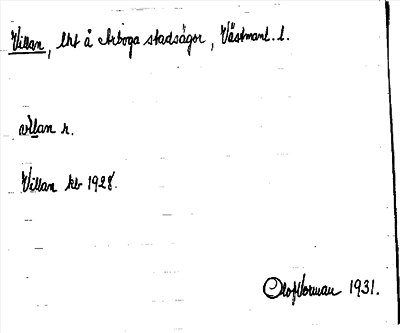 Villan, lht å Arboga stadsägor, Västmanl. l.
vıllan r.
Villan kb 1928.
Olof Vorman 1931.